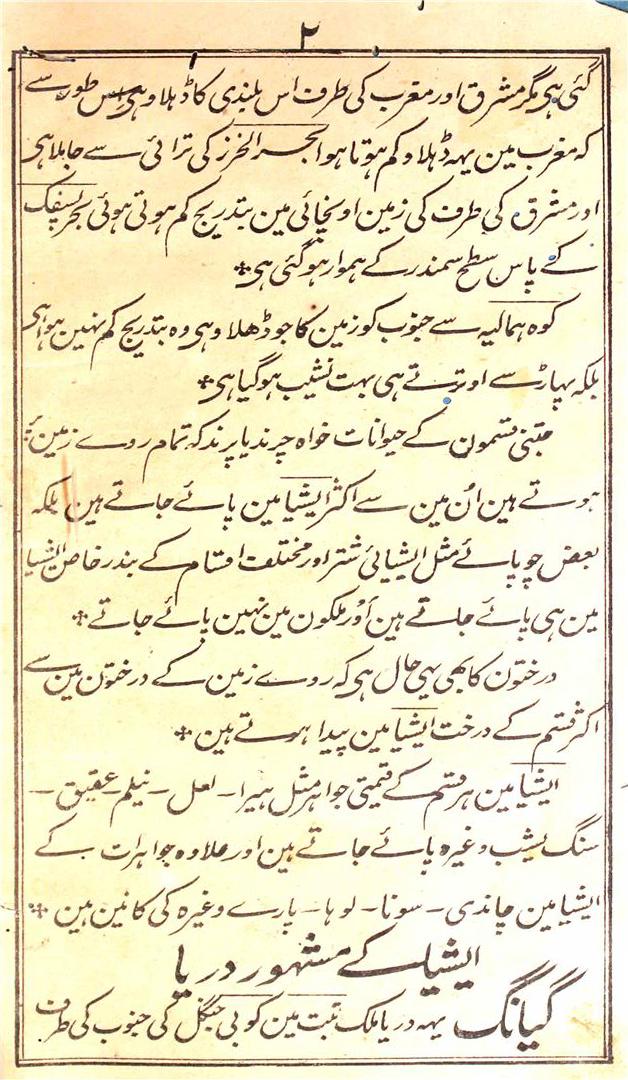 ۲
گئی ہی مگر مشرق اور مغرب کی طرف اس بلندی کا ڈہلاو ہی اس طور سے
کہ مغرب مین یہہ ڈہلاو کم ہوتا ہوا بحر الخرز کی ترائی سے جاملا ہی
اور مشرق کی طرف کی زمین اونچائی مین بتدریج کم ہوتی ہوئی بحر پسفک
کے پاس سطح سمندر کے ہموار ہو گئی ہی ٭
کوہ ہمالیہ سے جنوب کو زمین کا جو ڈھلاو ہی وہ بتدریج کم نہین ہوا ہی
بلکہ پہاڑ سے اوترتے ہی بہت نشیب ہو گیا ہی ٭
جتنی قسمون کے حیوانات خواہ چرند یا پرند کہ تمام روے زمین پر
ہوتے ہین اُن مین سے اکثر ایشیا مین پائے جاتے ہین بلکہ
بعض چوپائے مثل ایشیائی شتر اور مختلف اقسام کے بندر خاص ایشیا
مین ہی پائے جاتے ہین اَوْر ملکون مین نہین پائے جاتے ٭
درختون کا بھی یہی حال ہی کہ روے زمین کے درختون مین سے
اکثر قسم کے درخت ایشیا مین پیدا ہوتے ہین ٭
ایشیا مین ہر قسم کے قیمتی جواہر مثل ہیرا - لعل - نیلم - عقیق -
سنگ یشب وغیرہ پائے جاتے ہین اور علاوہ جواہرات کے
ایشیا مین چاندی - سونا - لوہا - پارے وغیرہ کی کانین ہین ٭
ایشیا کے مشہور دریا
کیانگ یہہ دریا ملک تبت مین کوبی جنگل کی جنوب کی طرف